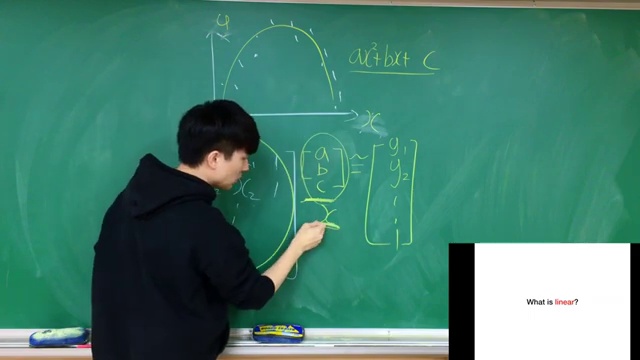 y
ax²+bx+ c
x
a
b
c
≅
y₁
y₂
x₂ 1
x
What is linear?